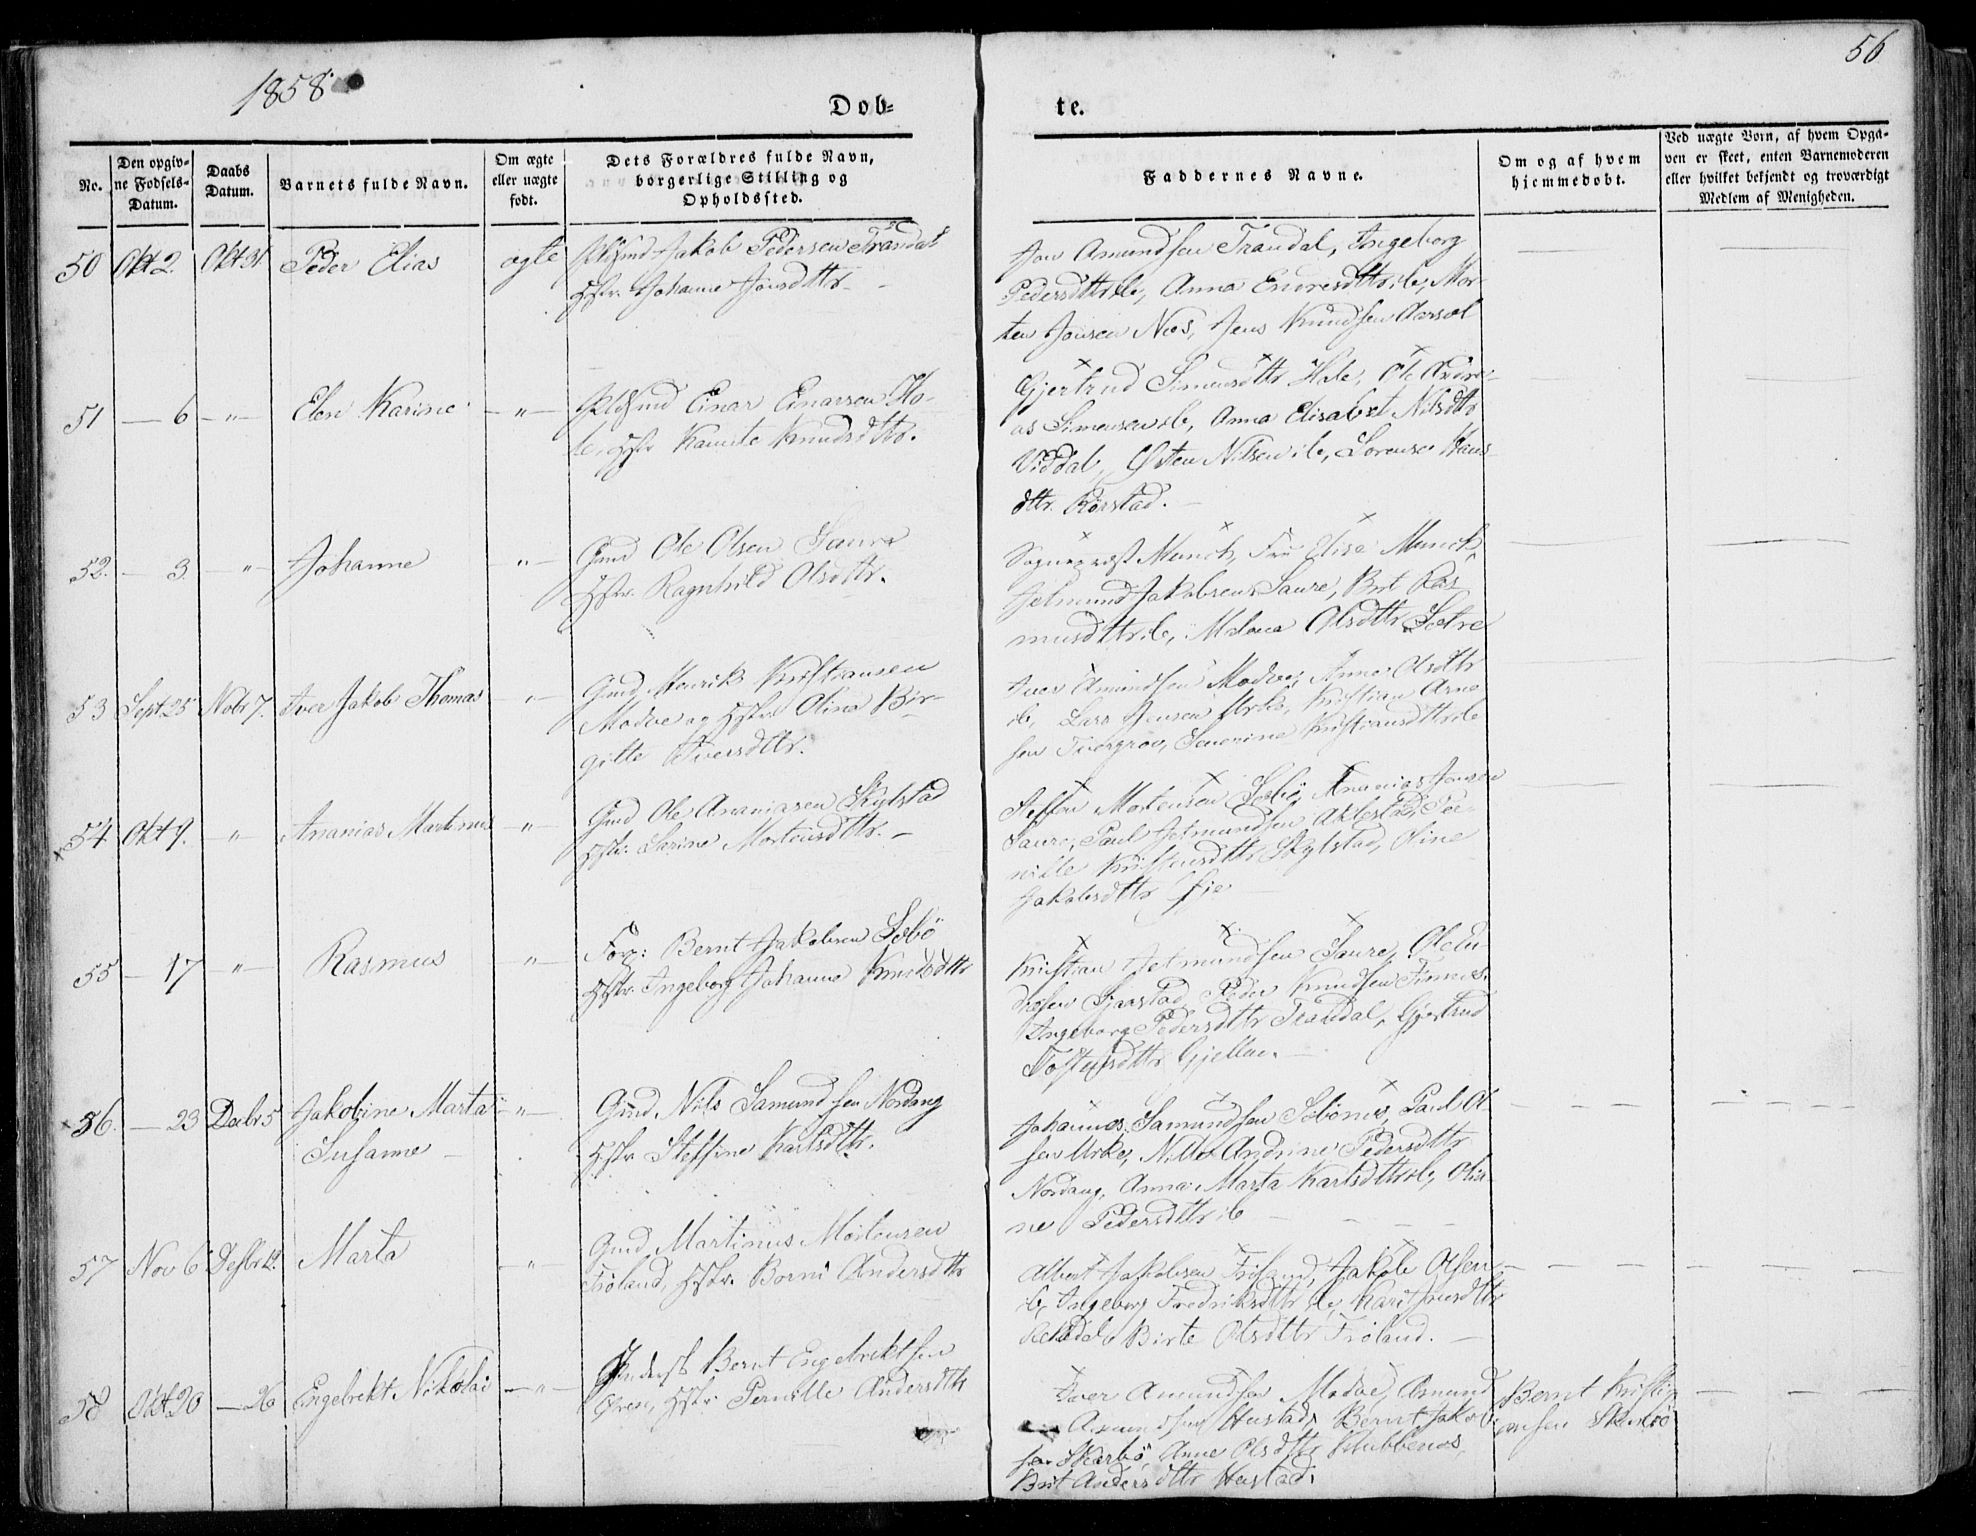 1858
56
Dob= te.
No.
Den opgiv-
ne Fodsels-
Datum.
Daabs
Datum.
Barnets fulde Navn.
Om ægte
eller uægte
født.
Dets Forældres fulde Navn,
borgerlige Stilling og
Opholdssted.
Faddernes Navne.
Om og af hvem
hjemmedobt.
Ved uægte Born, af hvem Opga-
ven er skeet, enten Barnemoderen
eller hvilket bekjendt og troværdigt
Medlem af Menigheden.
50 Okt 2. Okt 31. Peder Elias ægte Jakob Pedersen Trandal
Hstr. Johanne Jonsdttr.
Jon Amundsen Trandal, Ingeborg
Pedersdttr ib, Anna Endresdttr ib, Mor-
ten Jonsen Nes, Jens Knudsen Aarset
51 — 6 — " — Elen Karine — " — Einar Einarsen Ho-
le, Hstr. Knudsdttr.
Gjertrud Simensdttr Hole, Ole Andre-
as Simensen ib, Anna Elisabet Nilsdttr
Viddal, Østen Nilsen ib, Lorense Hans
dttr. Rørstad. —
52. — 3. — " Johanne — " — Gmd Ole Olsen Saure
Hstr. Ragnhild Olsdttr.
Sognepræst Munch, Fru Elise Munch,
Jetmund Jakobsen Saure, Brit Ras-
musdttr ib, Malena Olsdttr Sætre
53 Sept. 25 Nobr 7. Iver Jakob Thomas — " Gmd, Henrik Kristiansen
Modve og Hstr. Olina Bir-
gitte Iversdttr.
Iver Amundsen Modve, Anne Olsdttr
ib, Lars Jensen Urke, Kristian Arne
sen Tvergrov, Severine Kristiansdttr ib
x 54 Okt 9. " Ananias Martinus — " — Gmd Ole Ananiasen Skylstad
Hstr. Serine Mortensdttr. —
Steffen Mortensen Sebø, Ananias Jonsen
Saure, Paul Jetmundsen Aklestad, Per-
nille Kristensdttr Skylstad, Oline
Jakobsdttr Øie —
55 — 17 " Rasmus " Forp: Bernt Jakobsen Sebö
Hstr. Ingeborg Johanne Knudsdttr
Kristian Jetmundsen Saure, Ole
Peder Knudsen
Ingeborg Pedersdttr Trandal, Gjertrud
Tostensdttr Gjellne. —
x 56. — 23 Decbr 5 Jakobine Marta — " —
Susanne —
Gmd. Nils Samundsen Nordang
Hstr Steffine Karlsdttr.
Johannes Samundsen Sebönes, Paul Ol-
sen Urke, Nille Andrine Pedersdttr
Nordang, Anna Marta Karlsdttr ib, Olia-
ne Pedersdttr ib
57 Nov 6 Marta — " — Gmd Martinus Mortensen
Frøland, Hstr. Andersdttr
Albert Jakobsen Frøland, Jakob Olsen
ib, Ingeborg Fredriksdttr ib,
Birte Olsdttr Frøland. —
58 Okt 20 — 26 Engebrekt Nikolai — " — Bernt Engebrektsen
Øren, Hstr. Pernille Andersdttr
Iver Amundsen Modve, Amund
Amundsen Hustad, Bernt Jakob-
sen Skarbö, Anne Olsdttr Klubbenes
Brit Andersdttr Hustad.
Bernt Kristi-
ansen